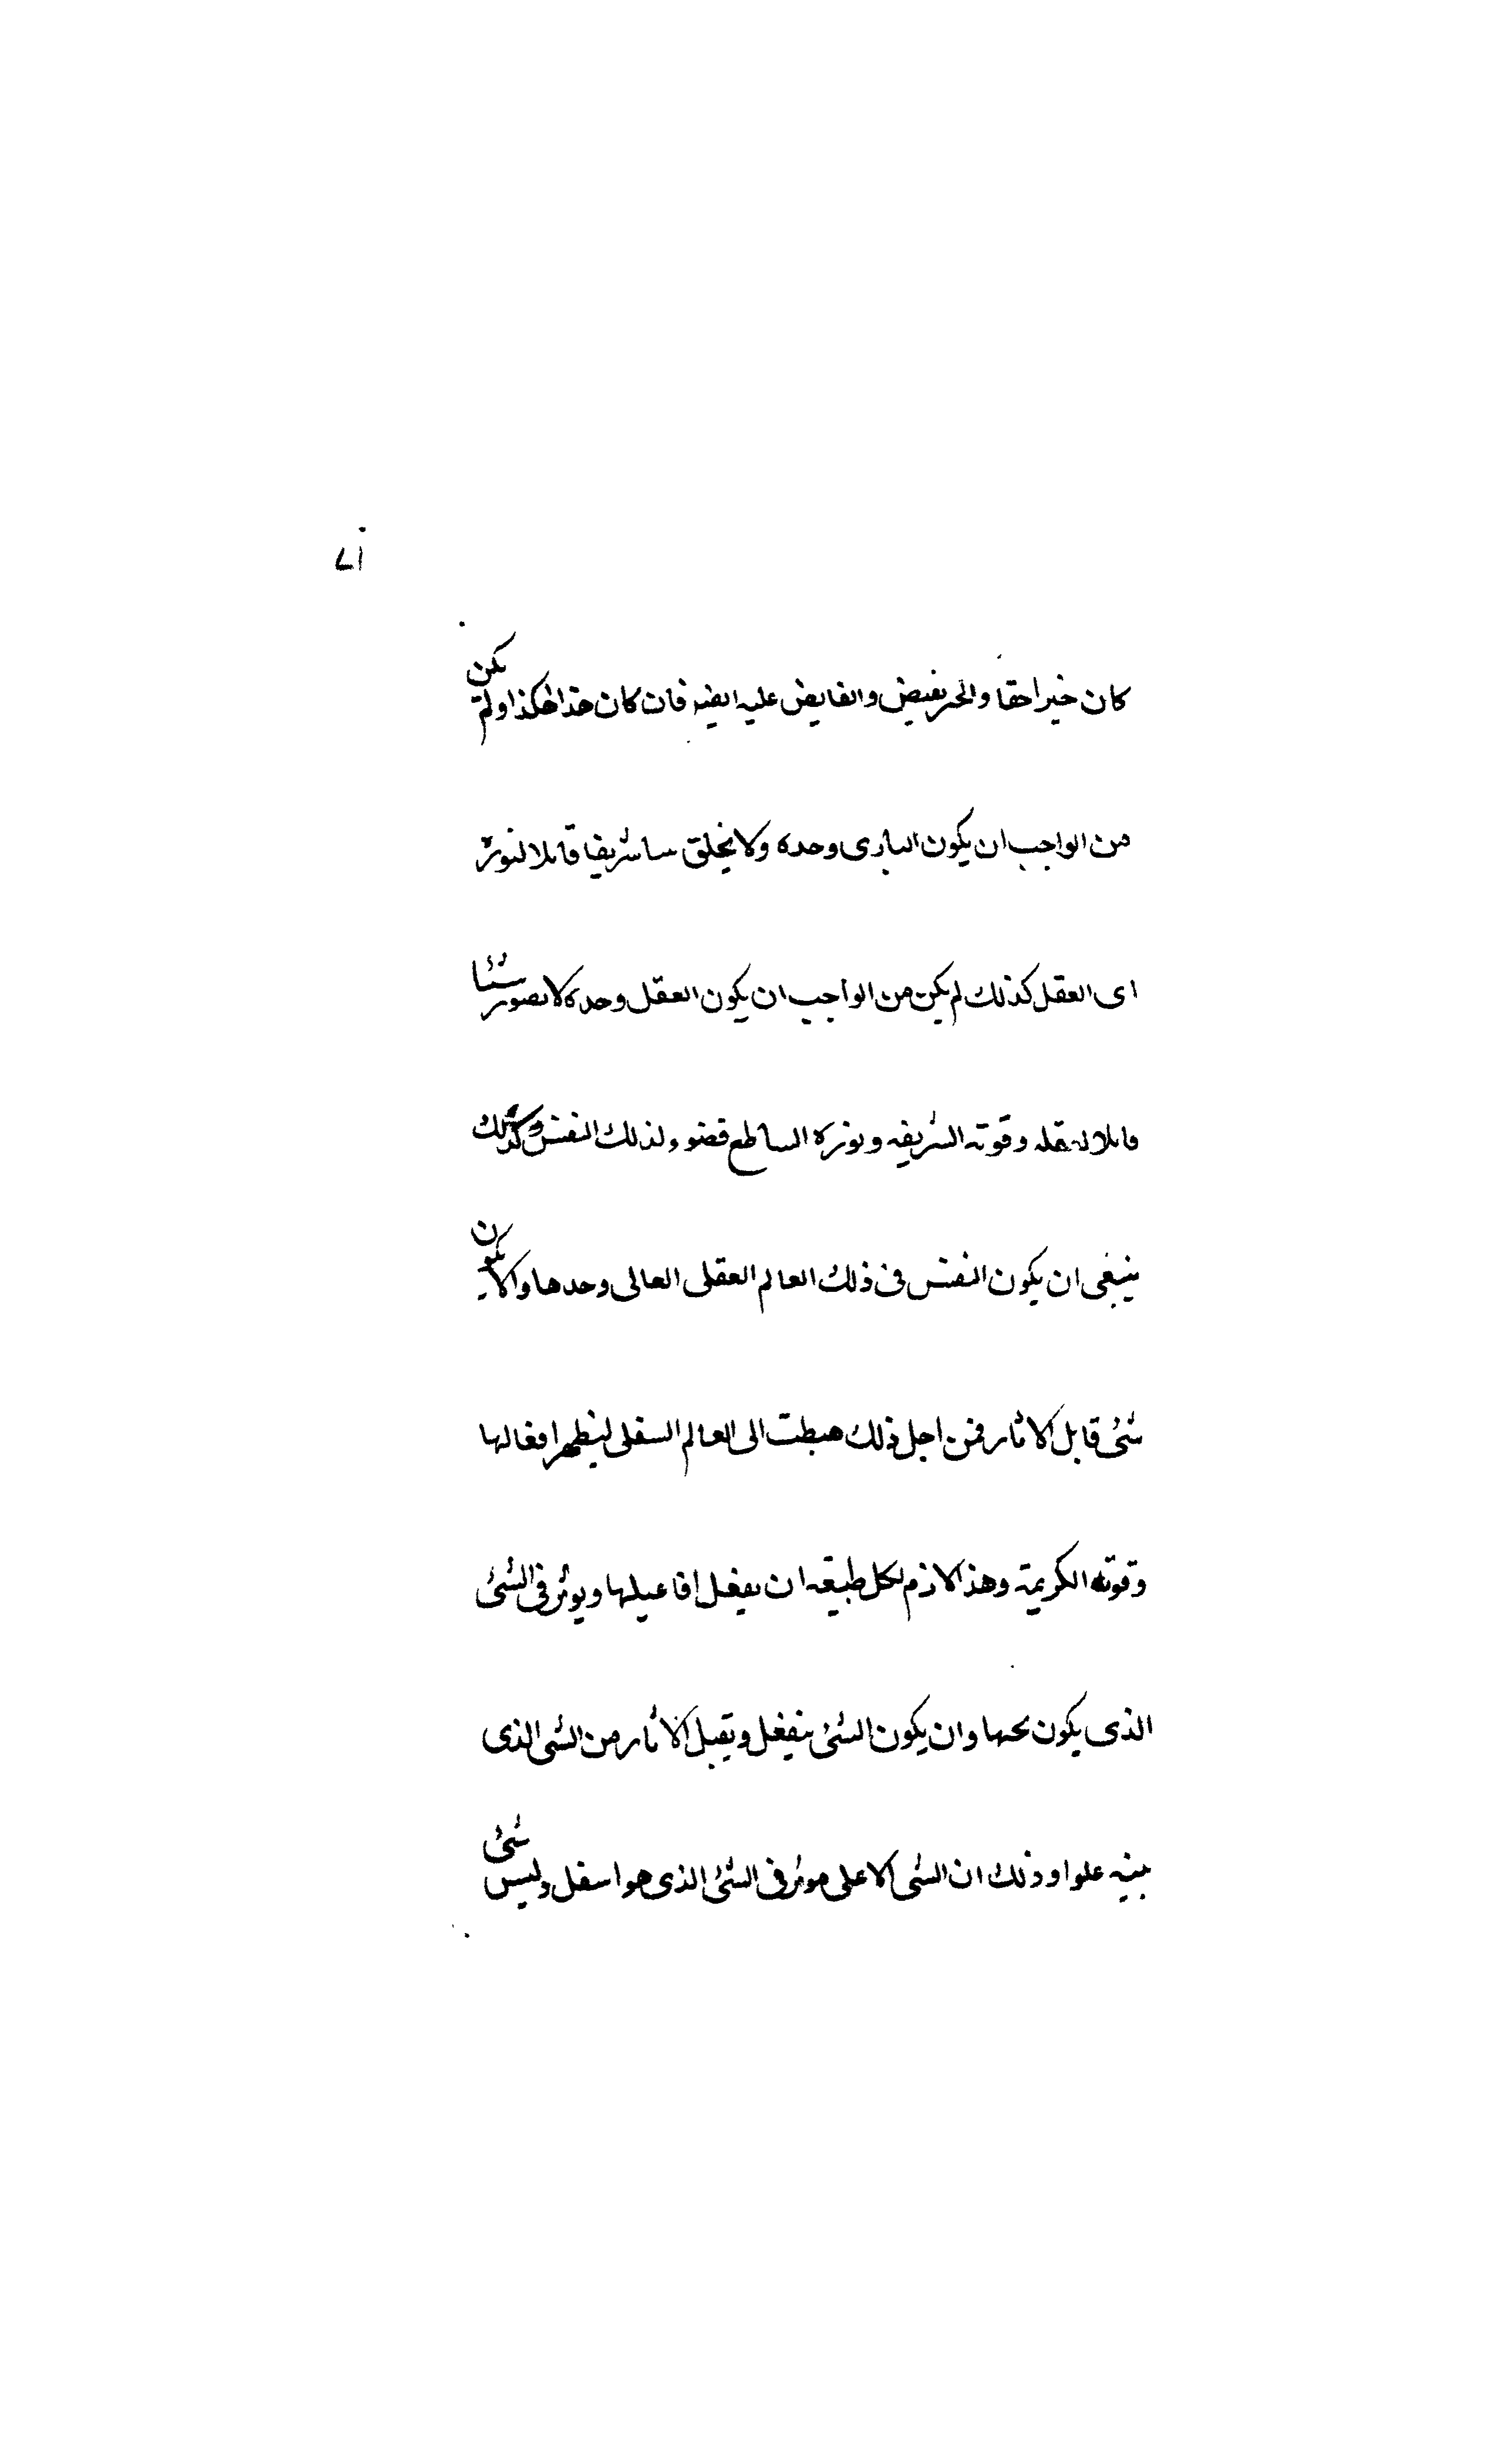 كان خيرا حقا والخير يفيض والفايض عليه ايضه فان كان هذا هكذا ولم يكن
من الواجب ان يكون البارى وحده ولا يخلق شيا شريفا قابلا لنوره
اى العقل كذلك لم يكن من الواجب ان يكون العقل وحده لا يصور شيئا
قابلا لفعله وقوته الشريفه ونوره الساطع فضوء ولذلك النفس كذلك
ينبغى ان يكون النفس فى ذلك العالم العقلى العالى وحدها والا يكون
شئ قابل لاثار فمن اجل ذلك هبطت الى العالم السفلى ليظهر افعالها
وقوته الكريمة وهذا لازم لكل طبيعه ان يفعل افاعيلها ويوثر فى الشئ
الذى يكون تحتها وان يكون الشئ ينفعل ويقبل الاثار من الشى الذى
علوا وذلك ان الشى الاعلى موثر فى الشئ الذى هو اسفل وليس شئ